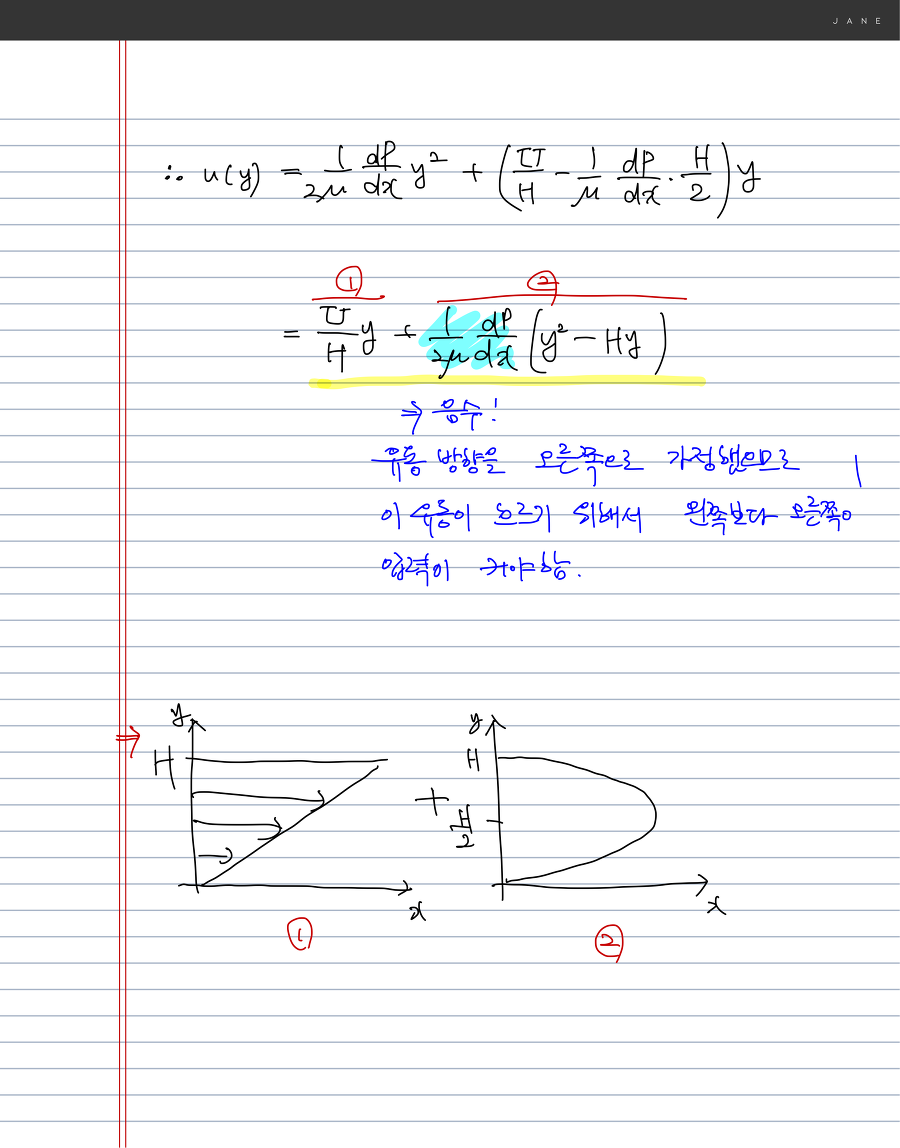 JANE
∴ u(y) = 1/2μ dP/dx y² + (U/H - 1/μ dP/dx · H/2) y
① ②
= U/H y + 1/2μ dP/dx (y² - Hy)
⇒ 음수!
유동 방향을 오른쪽으로 가정했으므로
이 유동이 흐르기 위해서 왼쪽보다 오른쪽이
압력이 커야함.
⇒ y y
H H
+ H/2
x x
① ②